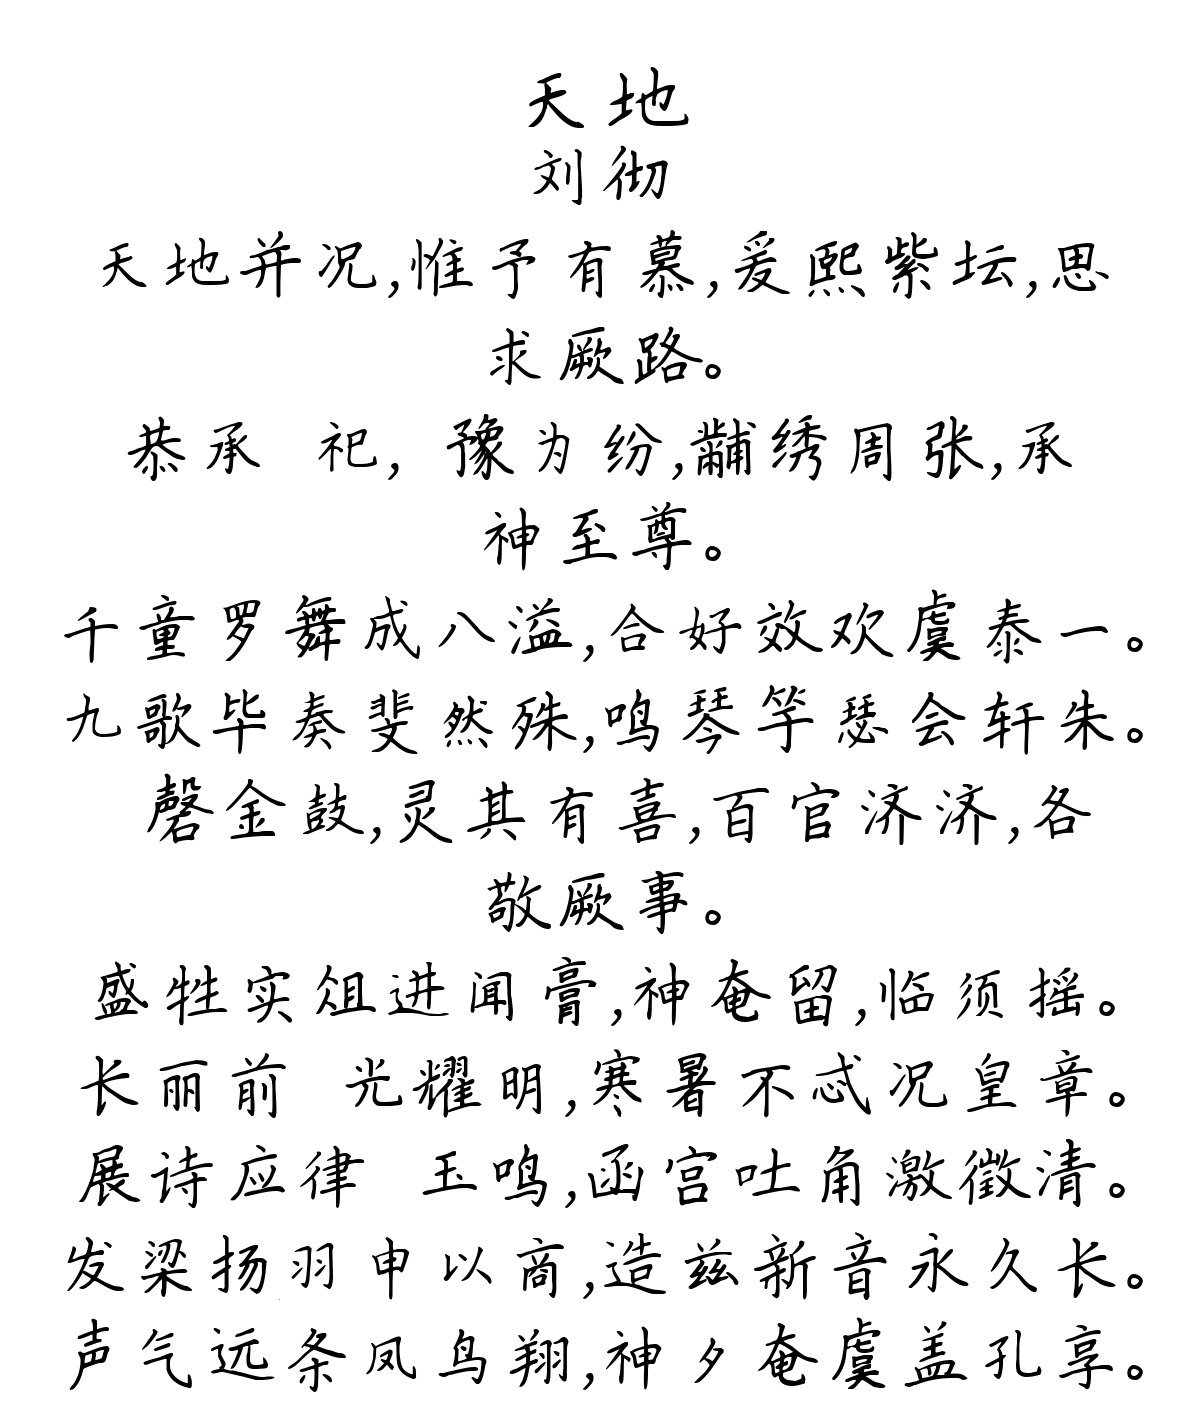 天地
刘彻
天地并况,惟予有慕,爰熙紫坛,思
求厥路。
恭承 祀, 豫为纷,黼绣周张,承
神至尊。
千童罗舞成八溢,合好效欢虞泰一。
九歌毕奏斐然殊,鸣琴竽瑟会轩朱。
磬金鼓,灵其有喜,百官济济,各
敬厥事。
盛牲实俎进闻膏,神奄留,临须摇。
长丽前 光耀明,寒暑不忒况皇章。
展诗应律 玉鸣,函宫吐角激徵清。
发梁扬羽申以商,造兹新音永久长。
声气远条凤鸟翔,神夕奄虞盖孔享。